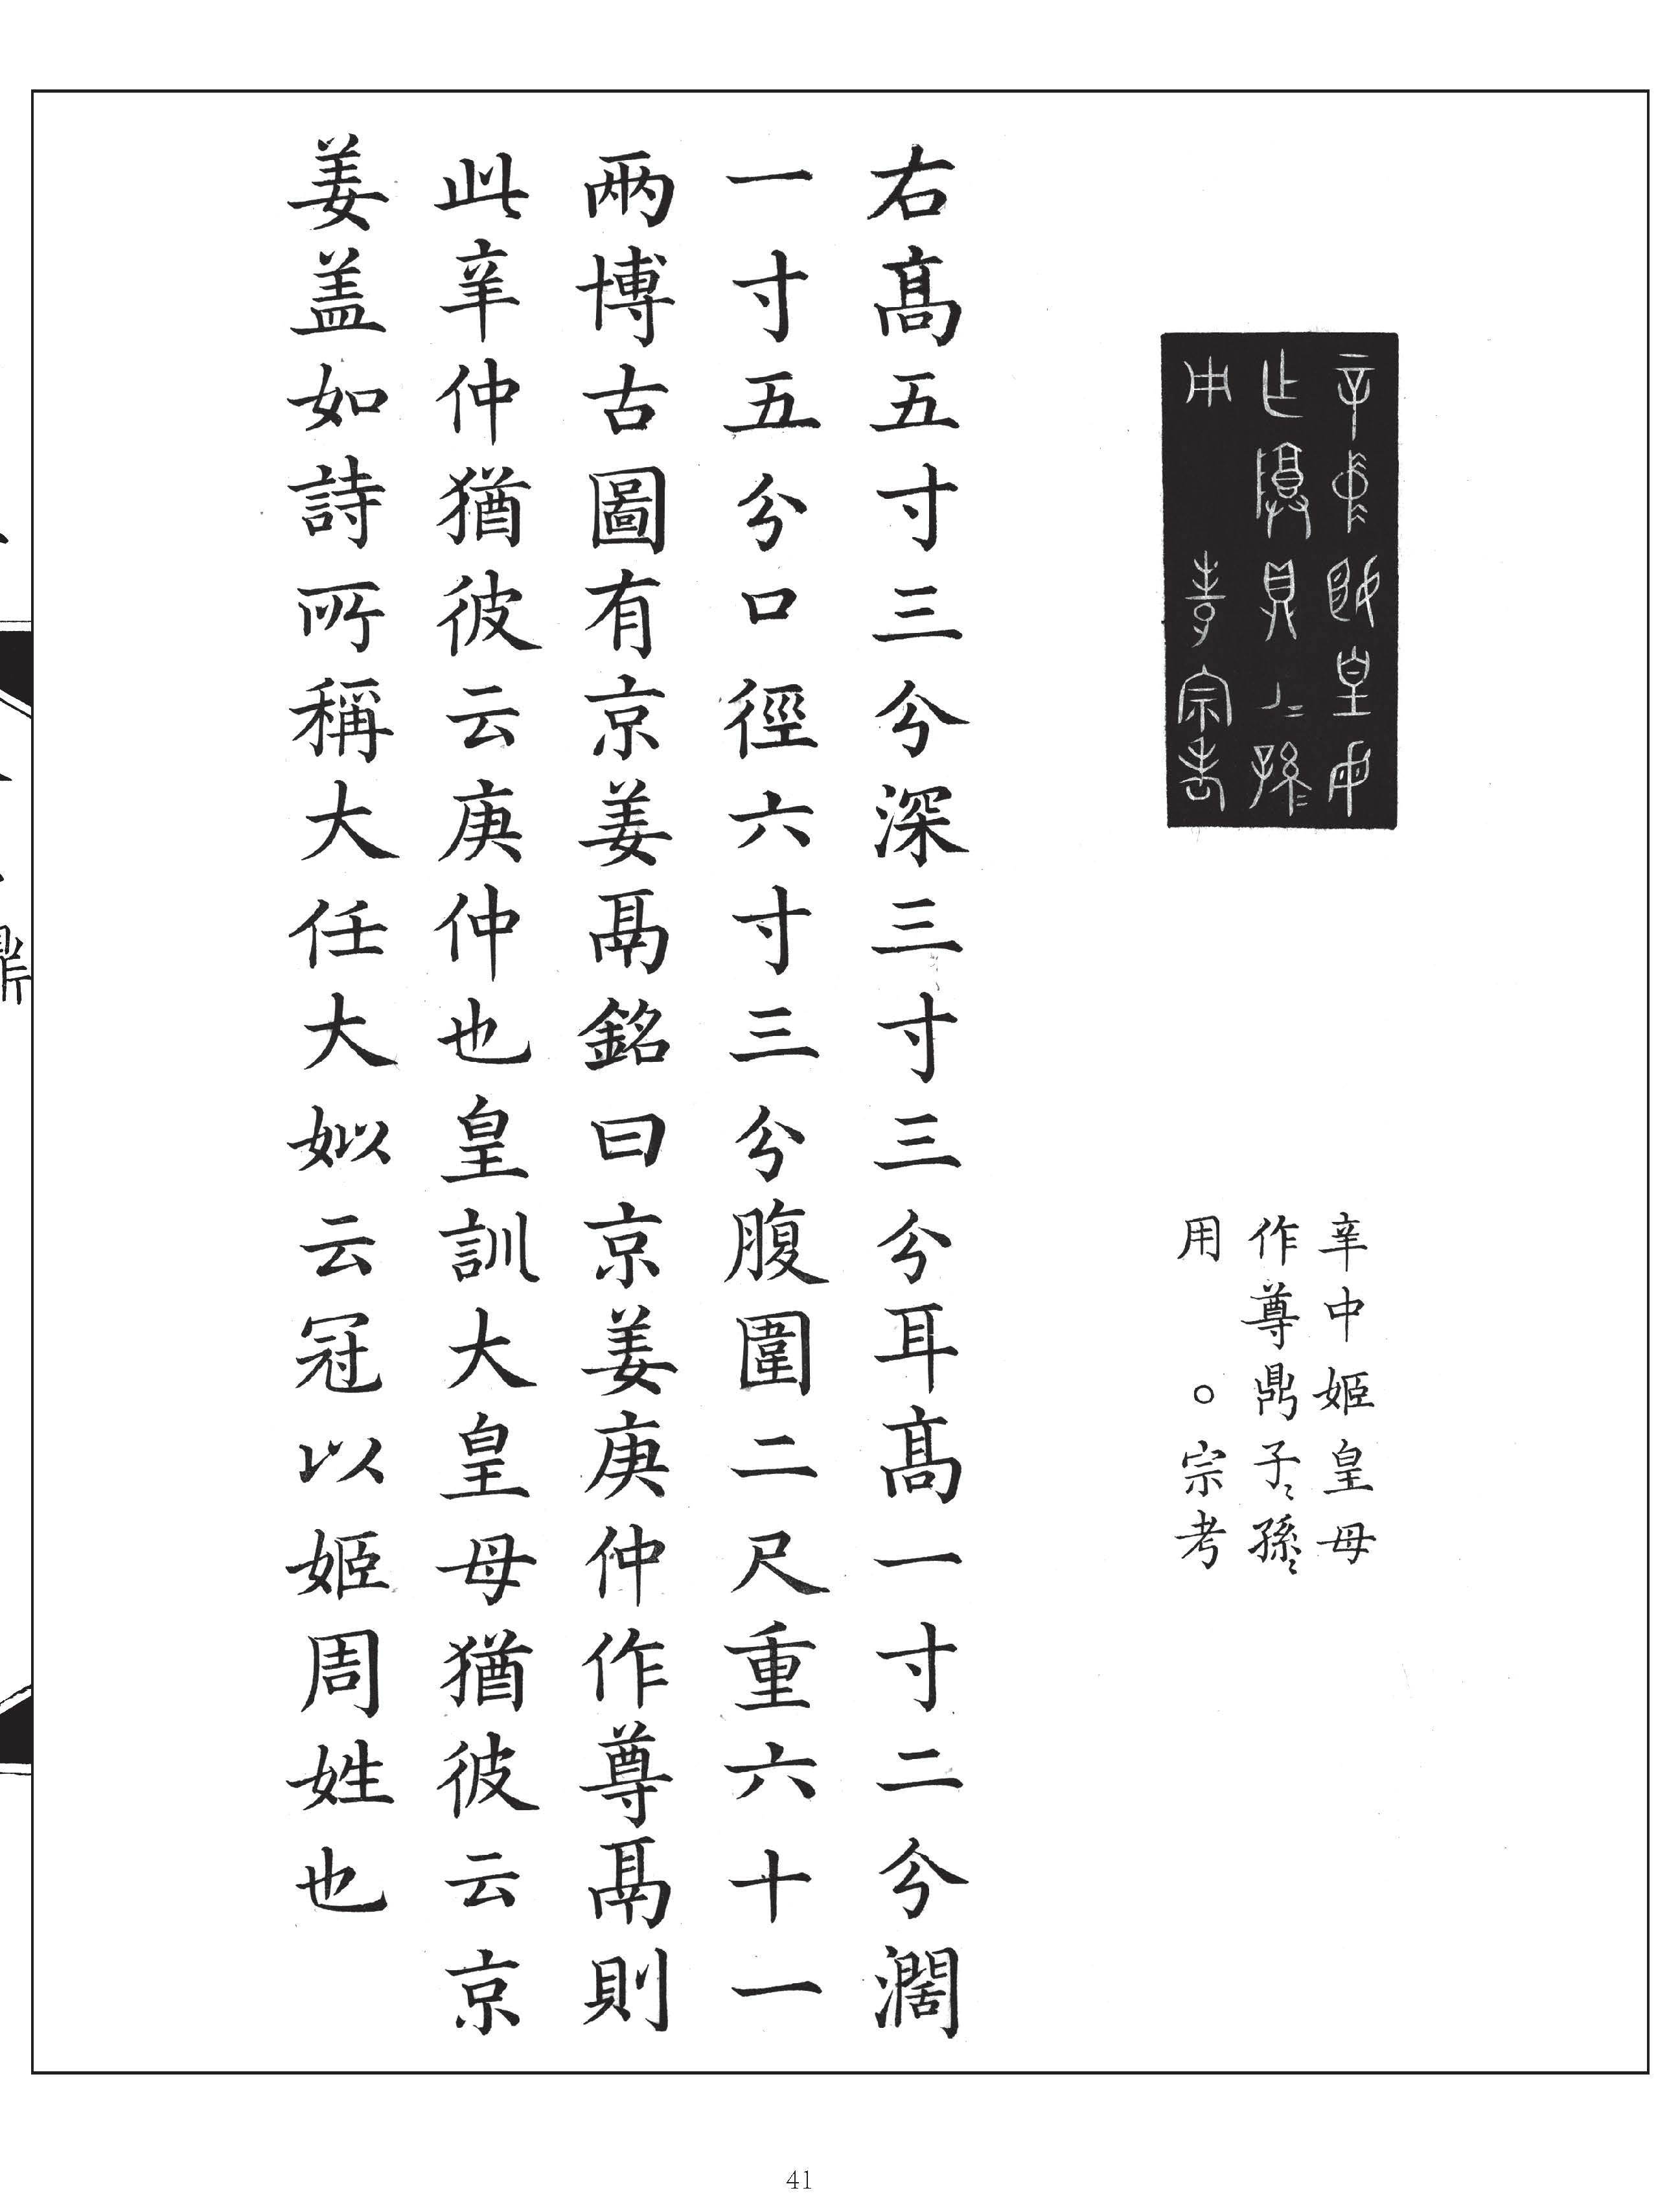 辛中姬皇母
作尊鼎子〻孫〻
用　○宗考
右高五寸三分深三寸三分耳高一寸二分濶
一寸五分口徑六寸三分腹圍二尺重六十一
兩博古圖有京姜鬲銘曰京姜庚仲作尊鬲則
此辛仲猶彼云庚仲也皇訓大皇母猶彼云京
姜盖如詩所稱大任大姒云冠以姬周姓也
41